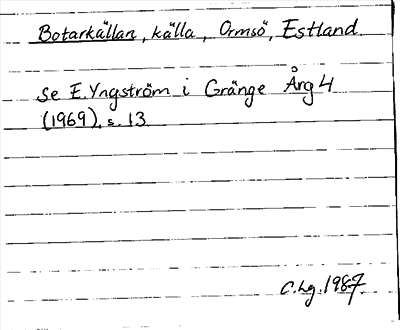 Botarkällan, källa, Ormsö, Estland
se E. Yngström i Gränge Årg 4
(1969), s. 13
C. Lg. 1987